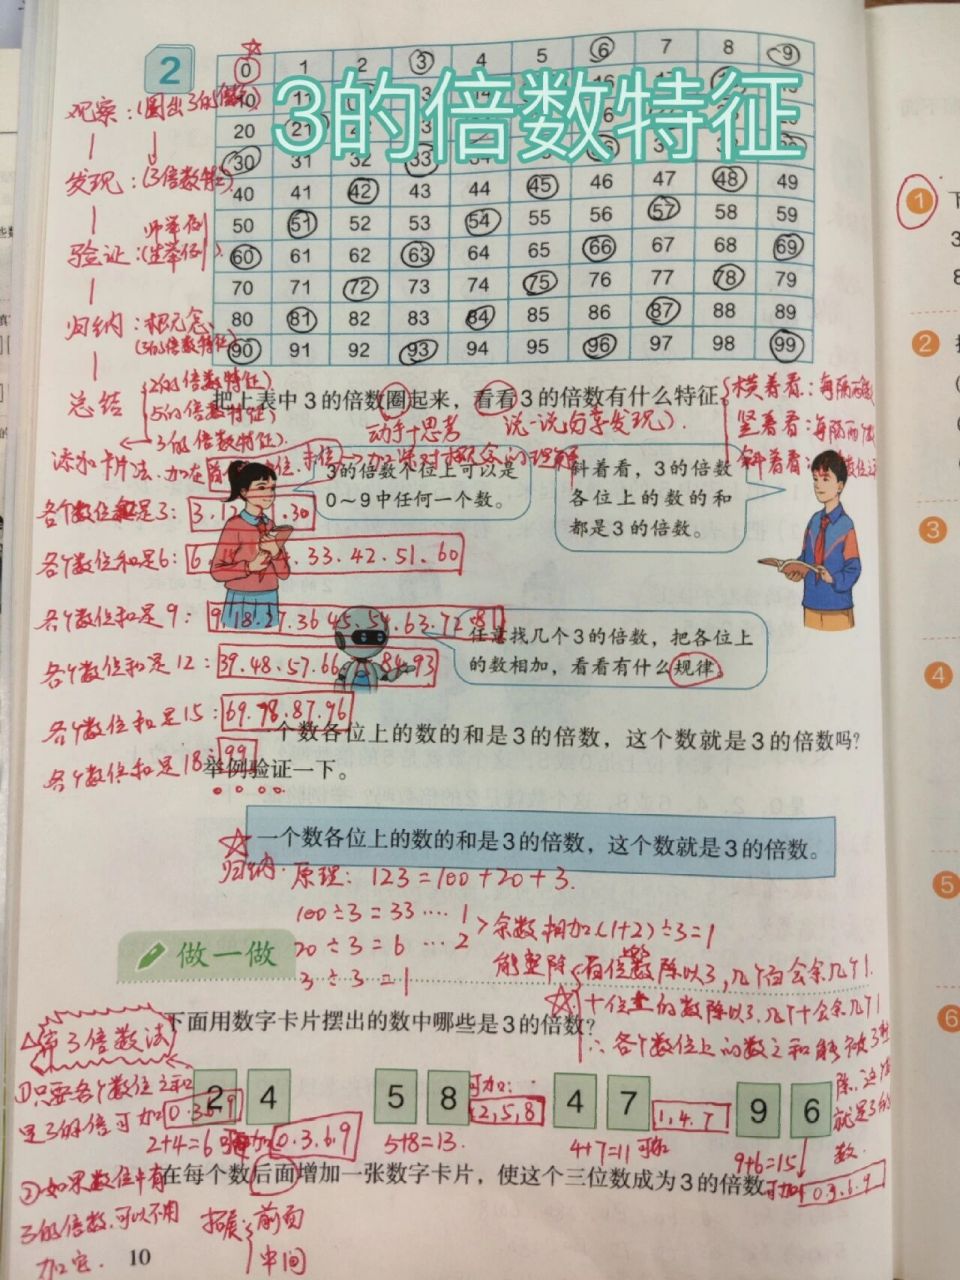 3的倍数特征
2
0 1 2 3 4 5 6 7 8 9
20 21
30 31 32 33
40 41 42 43 44 45 46 47 48 49
50 51 52 53 54 55 56 57 58 59
60 61 62 63 64 65 66 67 68 69
70 71 72 73 74 75 76 77 78 79
80 81 82 83 84 85 86 87 88 89
90 91 92 93 94 95 96 97 98 99
观察:(圈出3的倍数)
发现:(3倍数特征)
师举例
验证:(生举例)
归纳:概念
(3的倍数特征)
总结
2的倍数特征)
5的倍数特征)
3的倍数特征)
把上表中3的倍数圈起来,看看3的倍数有什么特征
动手+思考
说一说(分享发现)
横着看:每隔两数
竖着看:每隔两个
斜着看:
添加卡片法
3的倍数个位上可以是
0~9中任何一个数。
斜着看,3的倍数
各位上的数的和
都是3的倍数。
各个数位和是3: 3.12 .30
各个数位和是6: 6 .33.42.51.60
各个数位和是9: 9.18.27.36.45.54.63.72.81
各个数位和是12: 39.48.57.66 84.93
各个数位和是15: 69.78.87.96
各个数位和是18: 99
任意找几个3的倍数,把各位上
的数相加,看看有什么规律。
一个数各位上的数的和是3的倍数,这个数就是3的倍数吗?
举例验证一下。
一个数各位上的数的和是3的倍数,这个数就是3的倍数。
归纳.
原理: 123=100+20+3.
100÷3=33…1
20÷3=6…2
3÷3=1
余数相加(1+2)÷3=1
能整除
百位数除以3,几个百会余几个1.
十位上的数除以3.几个十会余几个1
∴各个数位上的数之和能被3整
除,这个
就是3的
数.
做一做
下面用数字卡片摆出的数中哪些是3的倍数?
第3倍数法
①只要各个数位之和
是3的倍可加0.3.6.9
2 4
5 8
4 7
9 6
2+4=6 可加0.3.6.9
5+8=13.
可加:
2,5,8
4+7=11 可加
1,4.7
9+6=15
可加0.3.6.9
在每个数后面增加一张数字卡片,使这个三位数成为3的倍数
②如果数位中有
3的倍数,可以不用
加它.
拓展:
前面
中间
10
1
2
3
4
5
6